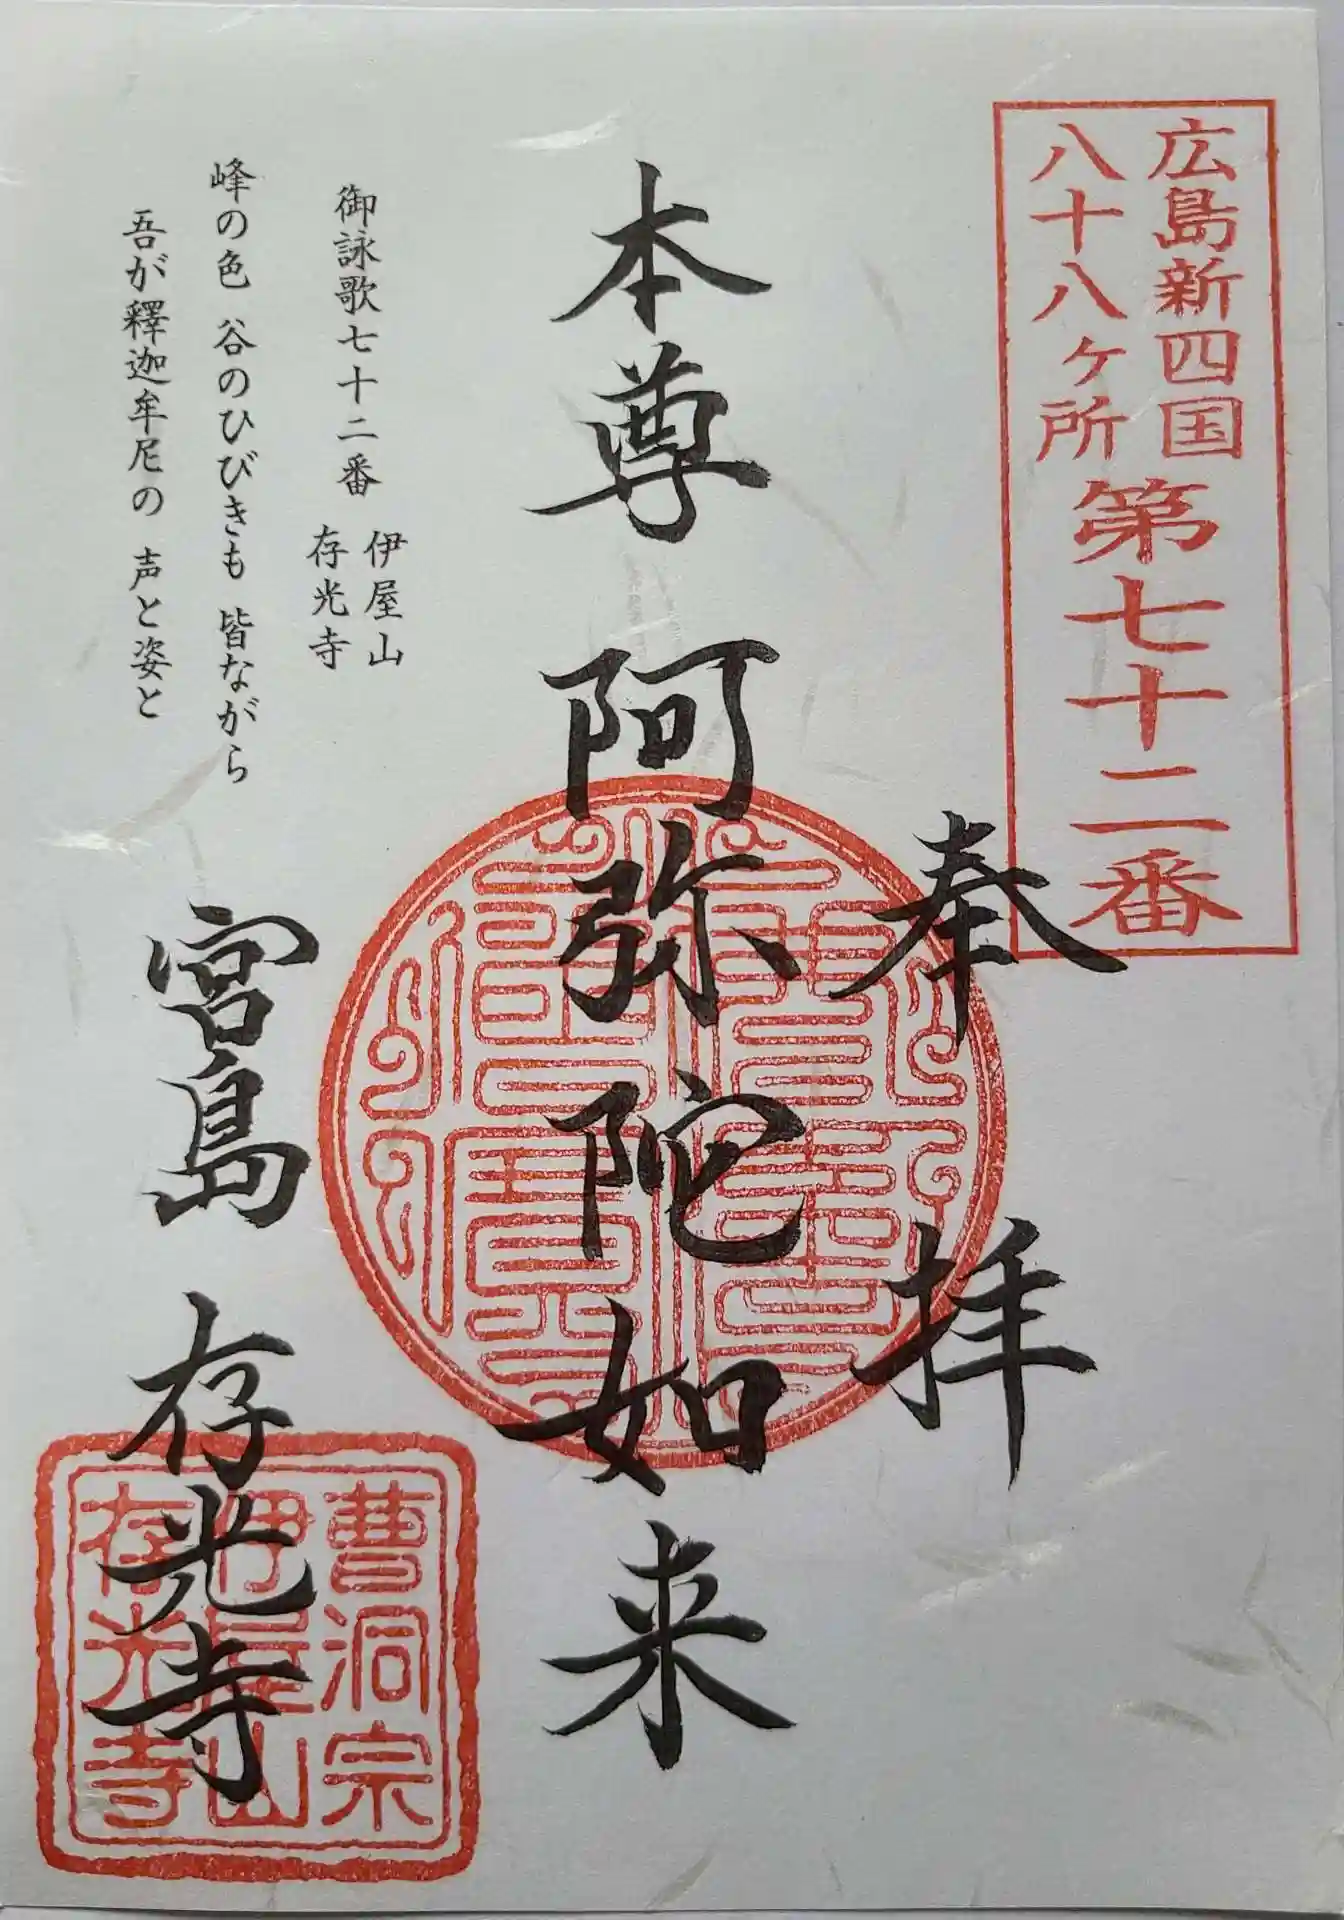 広島新四国
八十八ヶ所
第七十二番
奉拝
本尊 阿弥陀如来
御詠歌七十二番 伊屋山
存光寺
峰の色 谷のひびきも 皆ながら
吾が釋迦牟尼の 声と姿と
宮島 存光寺
佛法僧寳
曹洞宗
伊屋山
存光寺